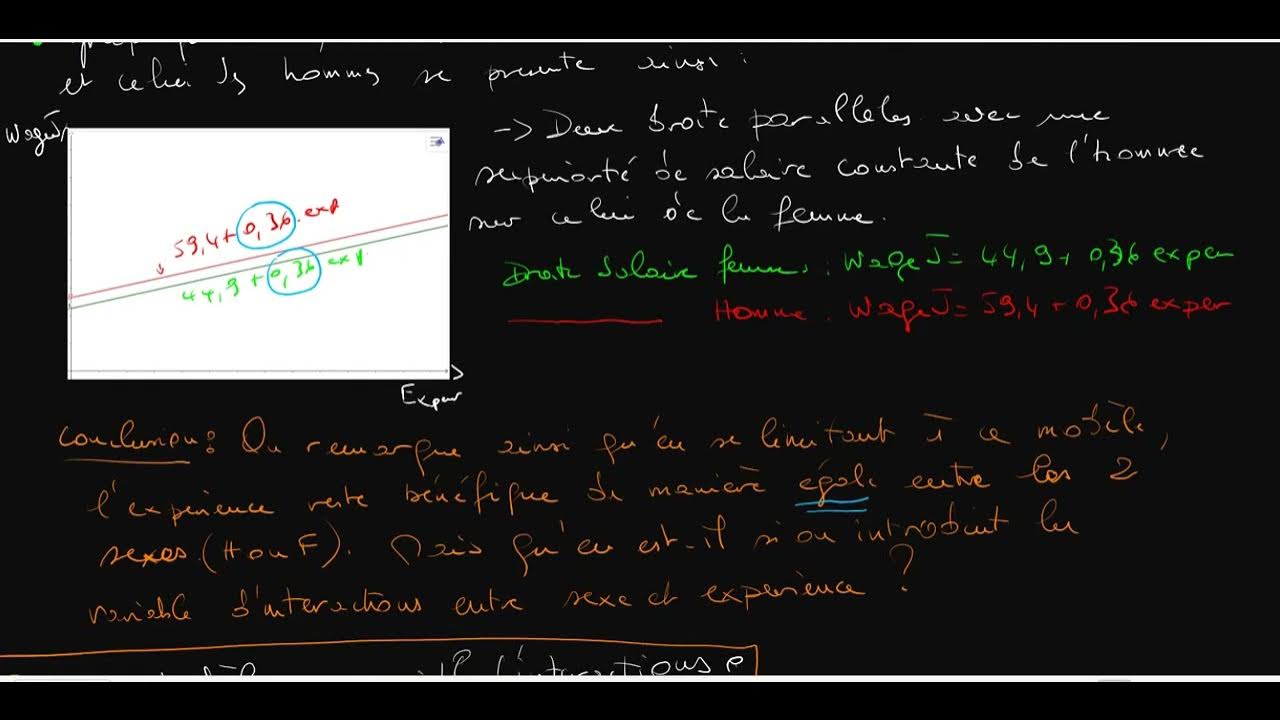 et celui ds hommes se presente ainsi :
WageJ
-> Deux droite paralleles avec une
superiorité de salaire constante de l'homme
sur celui de la femme.
59,4 + 0,36. exp
44,9 + 0,36 exp.
Droite Salaire femme : WageJ = 44,9 + 0,36 exper
Homme : WageJ = 59,4 + 0,36 exper
Exper
conclusion : On remarque ainsi qu'en se limitant à ce modèle,
l'experience reste bénéfique de manière égale entre les 2
sexes (H ou F). Mais qu'en est-il si on introduit la
variable d'interactions entre sexe et experience ?
l'interactions e